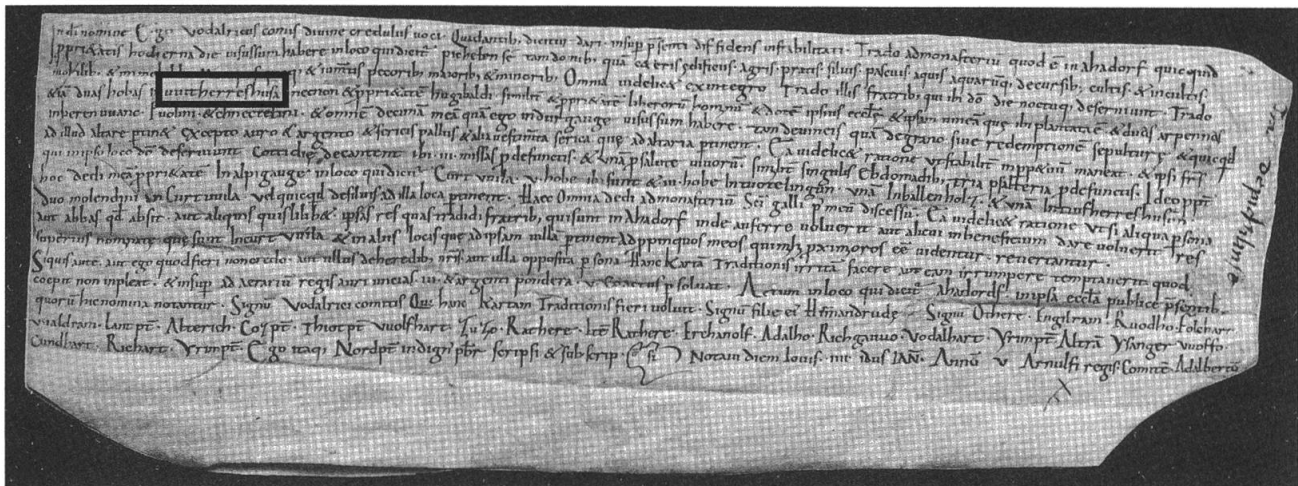 In di nomine Ego Vodalricus comis divine credulus voci. Qui dantib; dicitur dari. insup p̄senti diffidens infrabilitati. Trado ad monasteriū quod ē in ahadorf quicquid
pprietatis hodierna die visus sum habere in loco qui dicit̄ pichelense. tam domib; quā ceteris edificiis. agris. pratis. silvis pascuis aquis aquarūq; decursib; cultis. & incultis.
mobilib; & iumtis pecorib; maiorib; & minorib; Omnia videlicet ex integro Trado illis fratrib; qui ibi dō die noctuq; deserviunt. Trado
&iā duas hobas in vvitherreshusā necnon & pprietatē hugibaldi similit̄ & pprietatē liberorū hominū & dotē ipsius eccłe & ipsam vineā que ibi plantata ē & duas arpennas
& omnē decimā meā quā ego in durgauge visus sum habere. tam de vineis quā de grano sive redemptionē sepulturę & quicqd
ad illud altare ptinet excepto auro & argento & sericis palliis & alia serica que ad altaria ptinent. Ea videlicet ratione ut stabilit̄ maneat. & ipsi frēs
qui in ipso loco dō deserviunt Cottidie decantent ibi .iii. missas p defunctis. & unā p salute vivorū similit̄ singulis Ebdomadib; tria psalteria p defunctis. Ideo
hoc dedi meā pprietatē In alpigauge in loco qui dicit̄ Curt vvila. v. hobe ibi sunt & iii. hobe In vuotelingun. unā In ballenholz. & unā In vvitherreshusun.
Duo molendini in Curt vvila vel quicqd de silvis ad illa loca ptinent. Haec Omnia dedi ad monasteriū Sc̄i galli p meū discessū. Ea videlicet ratione ut si aliqua psona
aut abbas qd absit. aut aliquis quislibet ipsas res quas tradidi fratrib; qui sunt in Ahadorf inde auferre voluerit aut alicui in beneficium dare voluerit. res
superius nominate que sunt In curt vvila & in aliis locis que ad ipsam villā ptinent Ad ppinquos meos qui mihi pximores eē videntur. revertantur.
Siquis aute. aut ego quod fieri non credo. aut ullus de heredib; nris. aut ulla opposita psona Hanc Kartā Traditionis irritā facere aut eam irrumpere temptaverit quod
coepit non inpleat. & insup ad aerariū regis auri uncias .iii. & argenti pondera .v. coactus psolvat. Actum in loco qui dicit̄ ahadorf. in ipsa eccła publice p̄sentib;
quorū hic nomina notantur. Signū Vodalrici comitis Qui hanc Kartam Traditionis fieri voluit. Signū filie ei Irmindrudę. Signū Othere. Engilram. Ruodho. Folchart.
vualdram. lantpt̄. Alterich. Cozpt̄. Thiotpt̄ vuolfhart. Zuzo. Rathere. Ite Rathere. Erchanolf. Adalho. Richgauuo. Vodalhart Yrinpt̄ Altrā Ysanger vuoffo.
Cundhart. Richart. Yrinpt̄. Ego itaq; Nordpt̄ indign pbr scripsi & subscrip. Notavi diem Iovis. iiii idus IAN. Annū v Arnulfi regis. Comitē Adalbertū